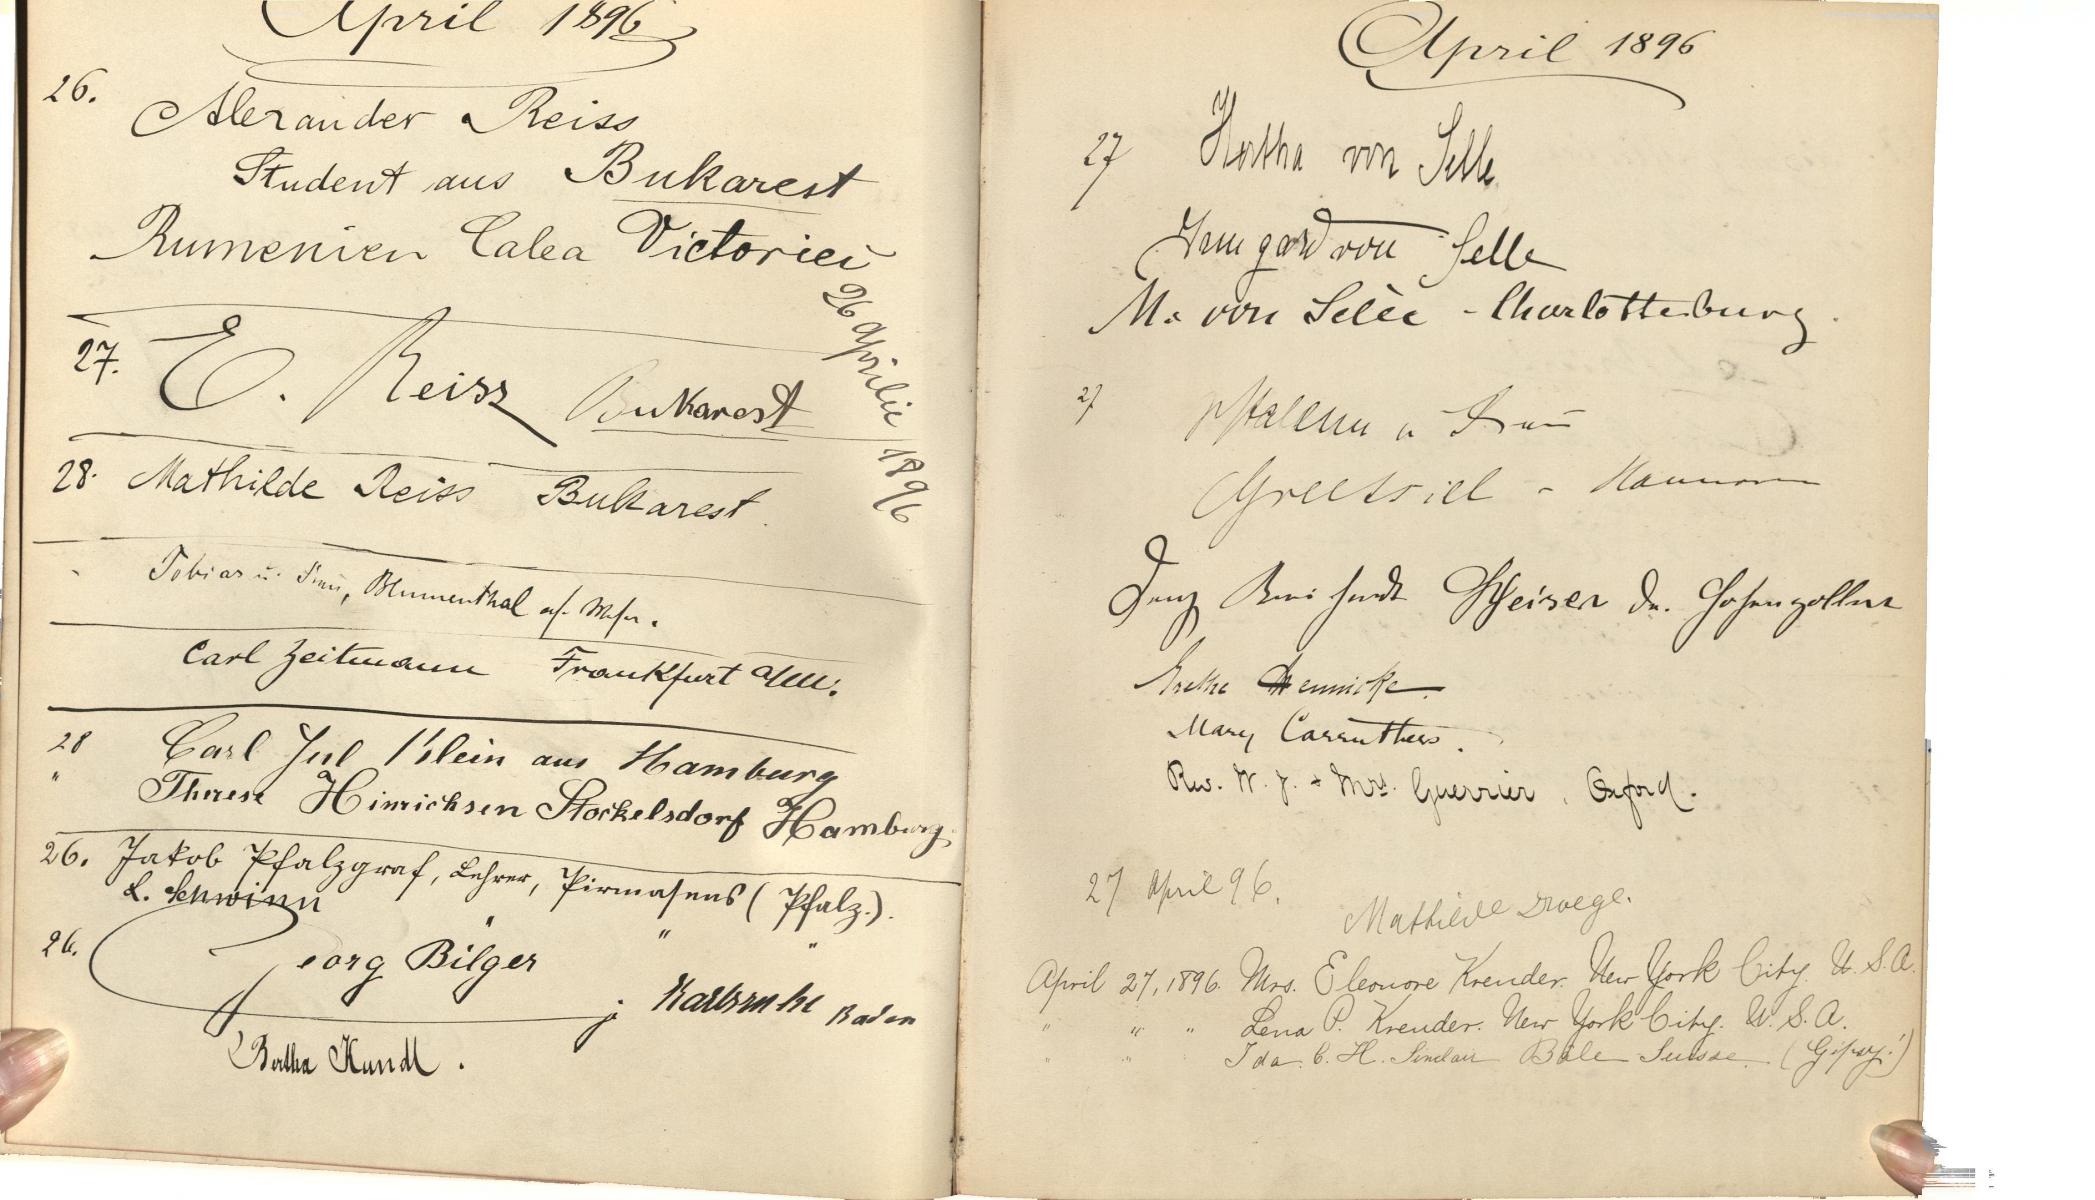 April 1896
26.
Alexander Reiss
Student aus Bukarest
Rumenien Calea Victoriei
26 Aprilie 1896
27. E. Reiss Bukarest
28. Mathilde Reiss Bukarest.
Tobias u. Frau, Blumenthal a/. Weser.
Carl Zeitmann Frankfurt a/M.
28 Carl Jul Klein aus Hamburg
" Therese Hinrichsen Stockelsdorf Hamburg.
26. Jakob Pfalzgraf, Lehrer, Pirmasens (Pfalz.).
L. Schwinn " " "
26. Georg Bilger Karlsruhe Baden
Bertha Kundl.
April 1896
27 Hertha von Selle
Irmgard von Selle
M. von Selle - Charlottenburg.
27 u Frau
Greetsiel - Hannover
Hohenzollern
Grethe Hennicke.
Mary Carruthers.
Rev. W. J. + Mrs. Guerrier, Oxford.
27 April 96.
Mathilde Droege.
April 27, 1896. Mrs. Eleonore Krender. New York City. U.S.A.
" " " Lena P. Krender. New York City. U.S.A.
" " Ida. C. H. Sinclair Bâle Suisse. (Gipsy!)